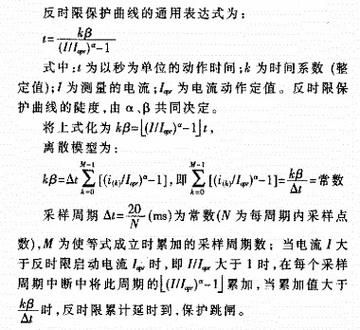 反时限保护曲线的通用表达式为:
t=kβ/((I/Iopr)^α-1)
式中:t为以秒为单位的动作时间;k为时间系数(整
定值);I为测量的电流;Iopr为电流动作定值。反时限保
护曲线的陡度,由α、β共同决定。
将上式化为kβ=⌊(I/Iopr)^α-1⌋t,
离散模型为:
kβ=Δt∑_{k=0}^{M-1}[(i(k)/Iopr)^α-1],即∑_{k=0}^{M-1}[(i(k)/Iopr)^α-1]=kβ/Δt=常数
采样周期Δt=20/N(ms)为常数(N为每周期内采样点
数),M为使等式成立时累加的采样周期数;当电流I大
于反时限启动电流Iopr时,即I/Iopr大于1时,在每个采样
周期中断中将此周期的⌊(I/Iopr)^α-1⌋累加,当累加值大于
kβ/Δt时,反时限累计延时到,保护跳闸。